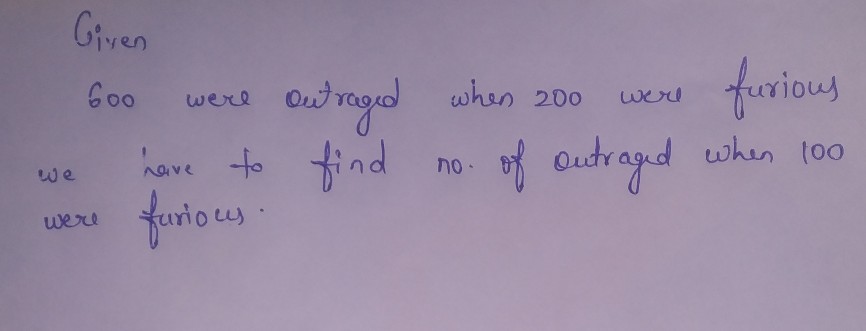 Given
600 were outraged when 200 were furious
we have to find no. of outraged when 100
were furious.